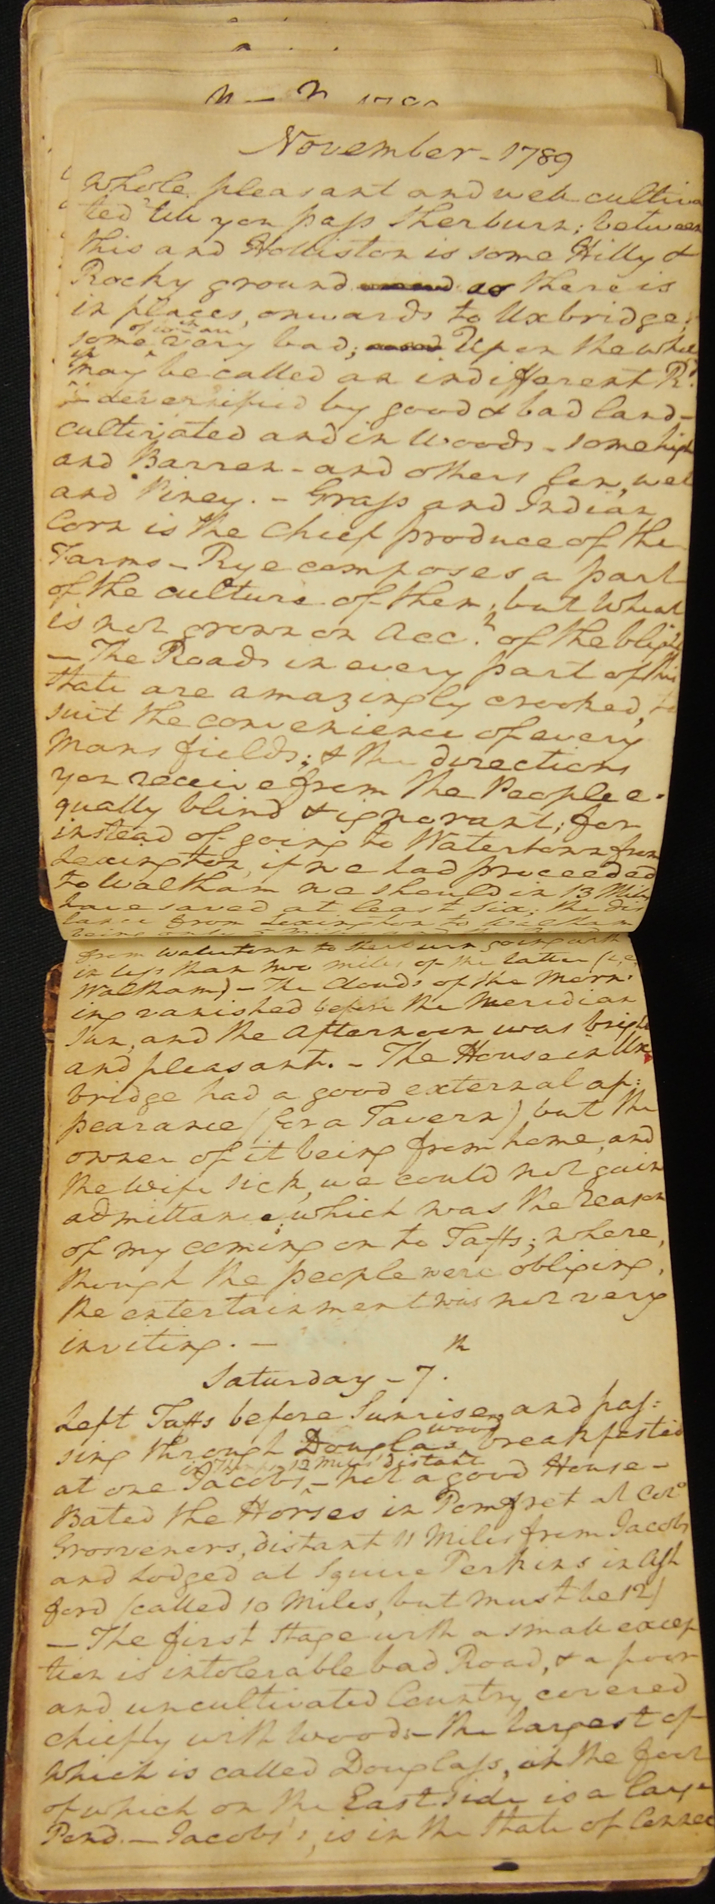 November - 1789
whole pleasant and well cultiva
ted till you pass Sherburn; between
this and Holliston is some Hilly &
Rocky ground as there is
in places, onwards to Uxbridge;
some of wch are very bad; Upon the whole
it may be called an indifferent Rd.
diversified by good & bad land -
cultivated and in woods - some high
and Barren - and others low, wet
and Piney. - Grass and Indian
Corn is the chief produce of the
Farms - Rye composes a part
of the culture of them, but wheat
is not grown on acct. of the blight
- The Roads in every part of this
State are amazingly crooked, to
suit the convenience of every
Mans fields; & the directions
you receive from the People e-
qually blind & ignorant; for
instead of going to Watertown from
Lexington, if we had proceeded
to Waltham we should in 13 Miles
have saved at least six; the dis
tance from Lexington to Waltham
being only 5 Miles
from Watertown to Sherburn going with
in less than two miles of the latter (i.e.
Waltham) - The Clouds of the Morn:
ing vanished before the Meridian
Sun, and the Afternoon was bright
and pleasant. - The House in Ux
bridge had a good external ap:
pearance (for a Tavern) but the
owner of it being from home, and
the wife sick, we could not gain
admittance; which was the reason
of my coming on to Tafts; where,
though the people were obliging,
the entertainment was not very
inviting. -
Saturday - 7th.
Left Tafts before Sunrise, and pas:
sing through Douglas wood breakfasted
at one Jacobs, 12 Miles distant - not a good House -
Bated the Horses in Pomfret at Colo
Grosveners, distant 11 Miles from Jacobs
and Lodged at Squire Perkins in Ash
ford (called 10 Miles, but must be 12)
- The first Stage with a small excep
tion is intolerable bad Road, & a poor
and uncultivated Country covered
chiefly with woods - the largest of
which is called Douglass, at the foot
of which on the East side is a large
Pond. - Jacobs's, is in the State of Connec